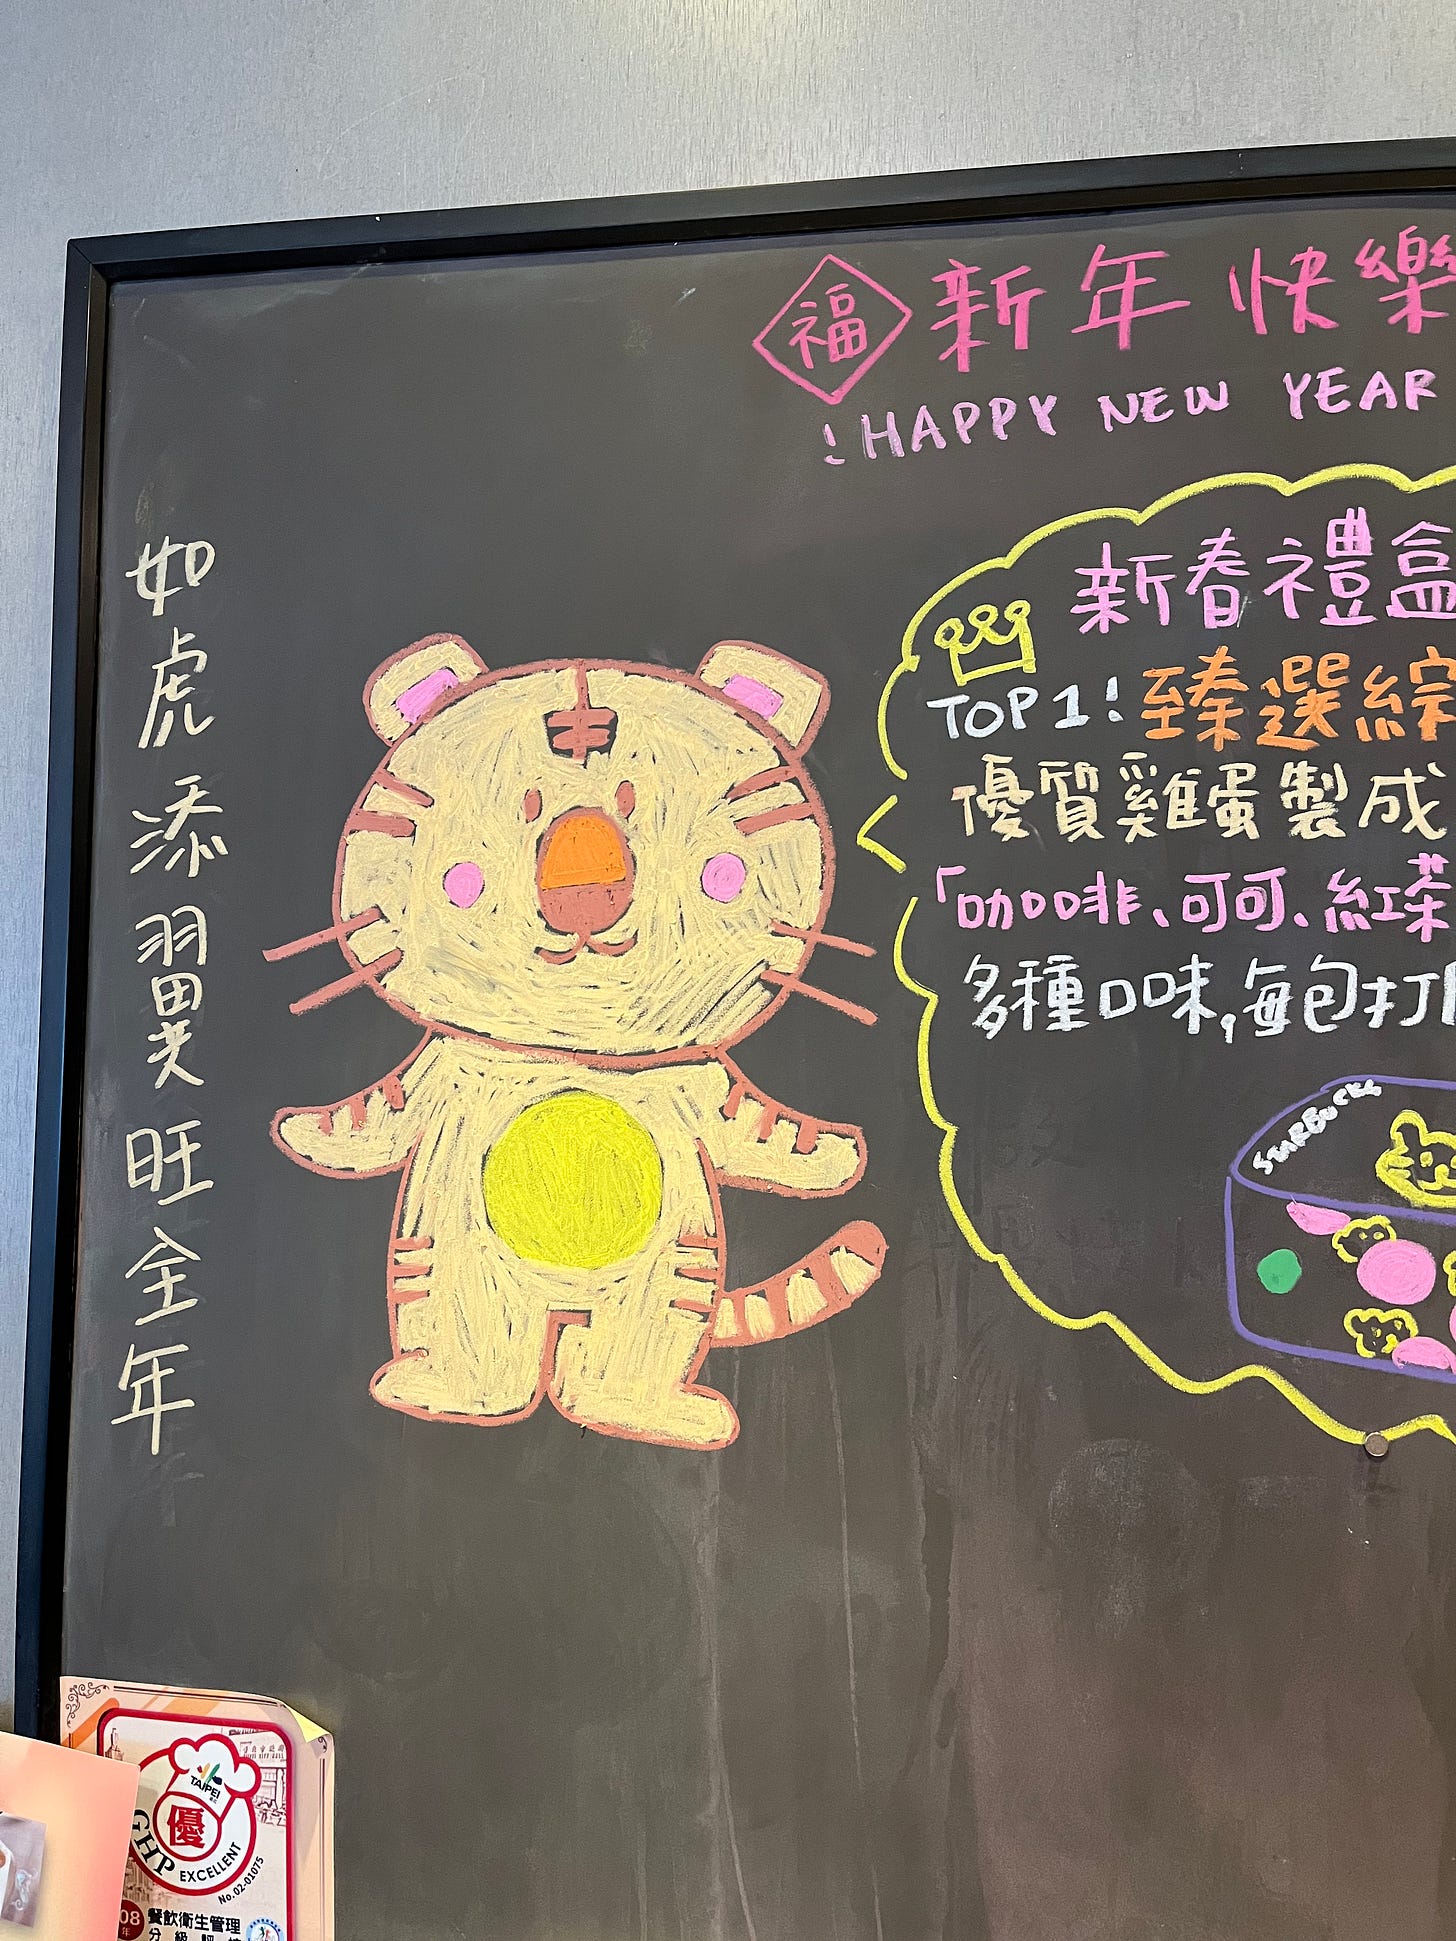 福 新年快樂
!HAPPY NEW YEAR
如虎添翼旺全年
新春禮盒
TOP1!臻選綜
優質雞蛋製成
「咖啡、可可、紅茶
多種口味,每包打
STARBUCKS
TAIPEI
優
GHP EXCELLENT
No.02-01075
08
年
餐飲衛生管理
分級評